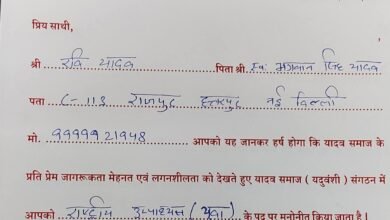 प्रिय साथी,
श्री रवि यादव पिता श्री. स्व. भगवान सिंह यादव
पता C-113 राजपुर नई दिल्ली
मो. 9999921948 आपको यह जानकर हर्ष होगा कि यादव समाज के
प्रति प्रेम जागरूकता मेहनत एवं लगनशीलता को देखते हुए यादव समाज ( यदुवंशी ) संगठन में
आपको राष्ट्रीय उपाध्यक्ष (युवा) के पद पर मनोनीत किया जाता है।